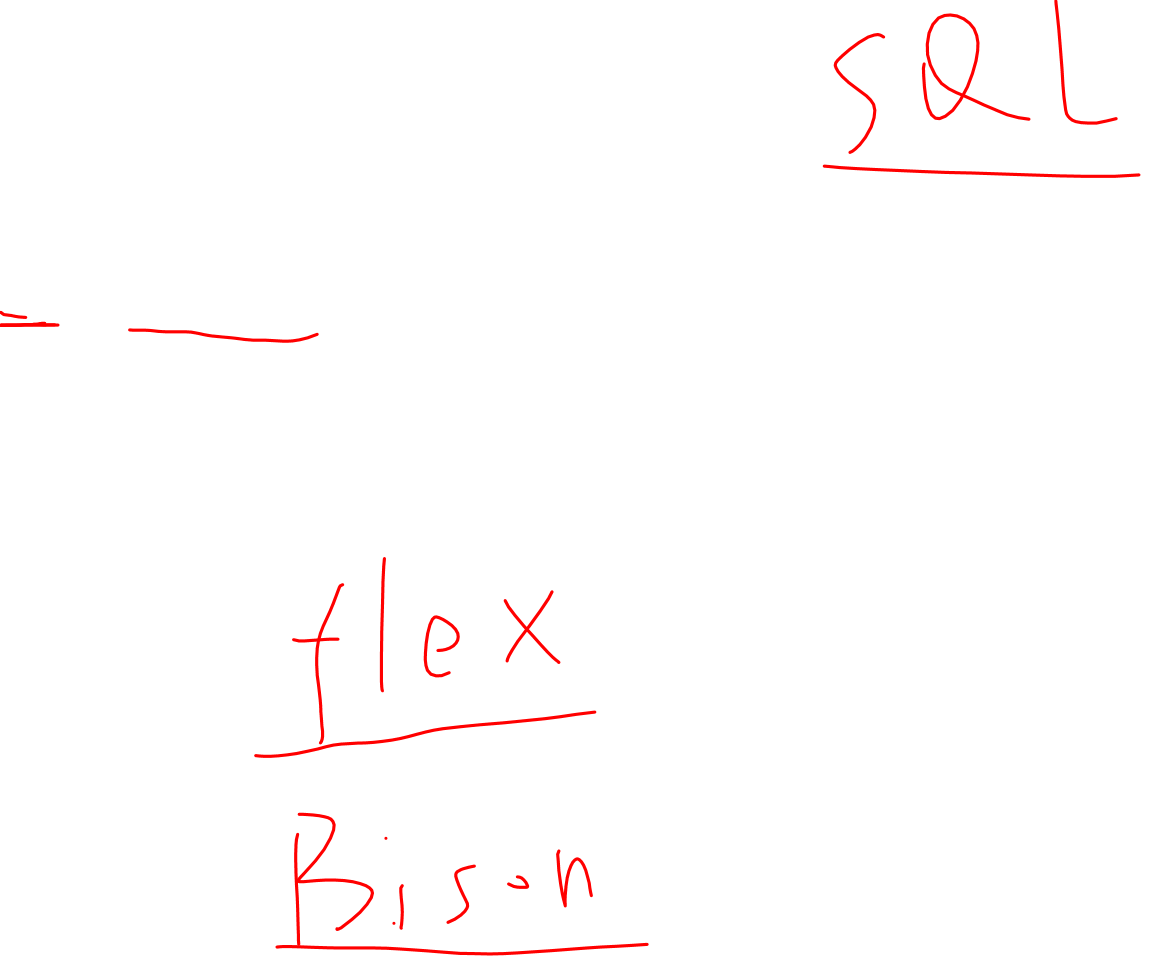 SQL
flex
Bison